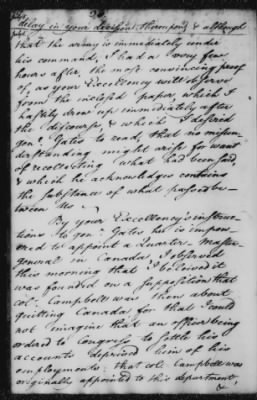 delay in your decision thereupon, & although
that the army is immediately under
his command, I had a very few
hours after, the most convincing proof
of, as your Excellency will observe
from the inclosed paper, which I
hastily drew up immediately after
the discourse, & which I desired
Genl. Gates to read, that no misun-
derstanding might arise for want
of recollecting what had been said,
& which he acknowledges contains
the substance of what passed be-
tween us.
By your Excellency's instruc-
tions to Genl. Gates he is impow-
ered to appoint a Quarter Master
General in Canada, I observed
this morning that I believed it
was founded on a supposition that
Col. Campbell was then about
quitting Canada, for that I could
not imagine that an officer being
ordered to Congress to settle his
accounts deprived him of his
employments: that Col. Campbell was
originally appointed to this department,
&